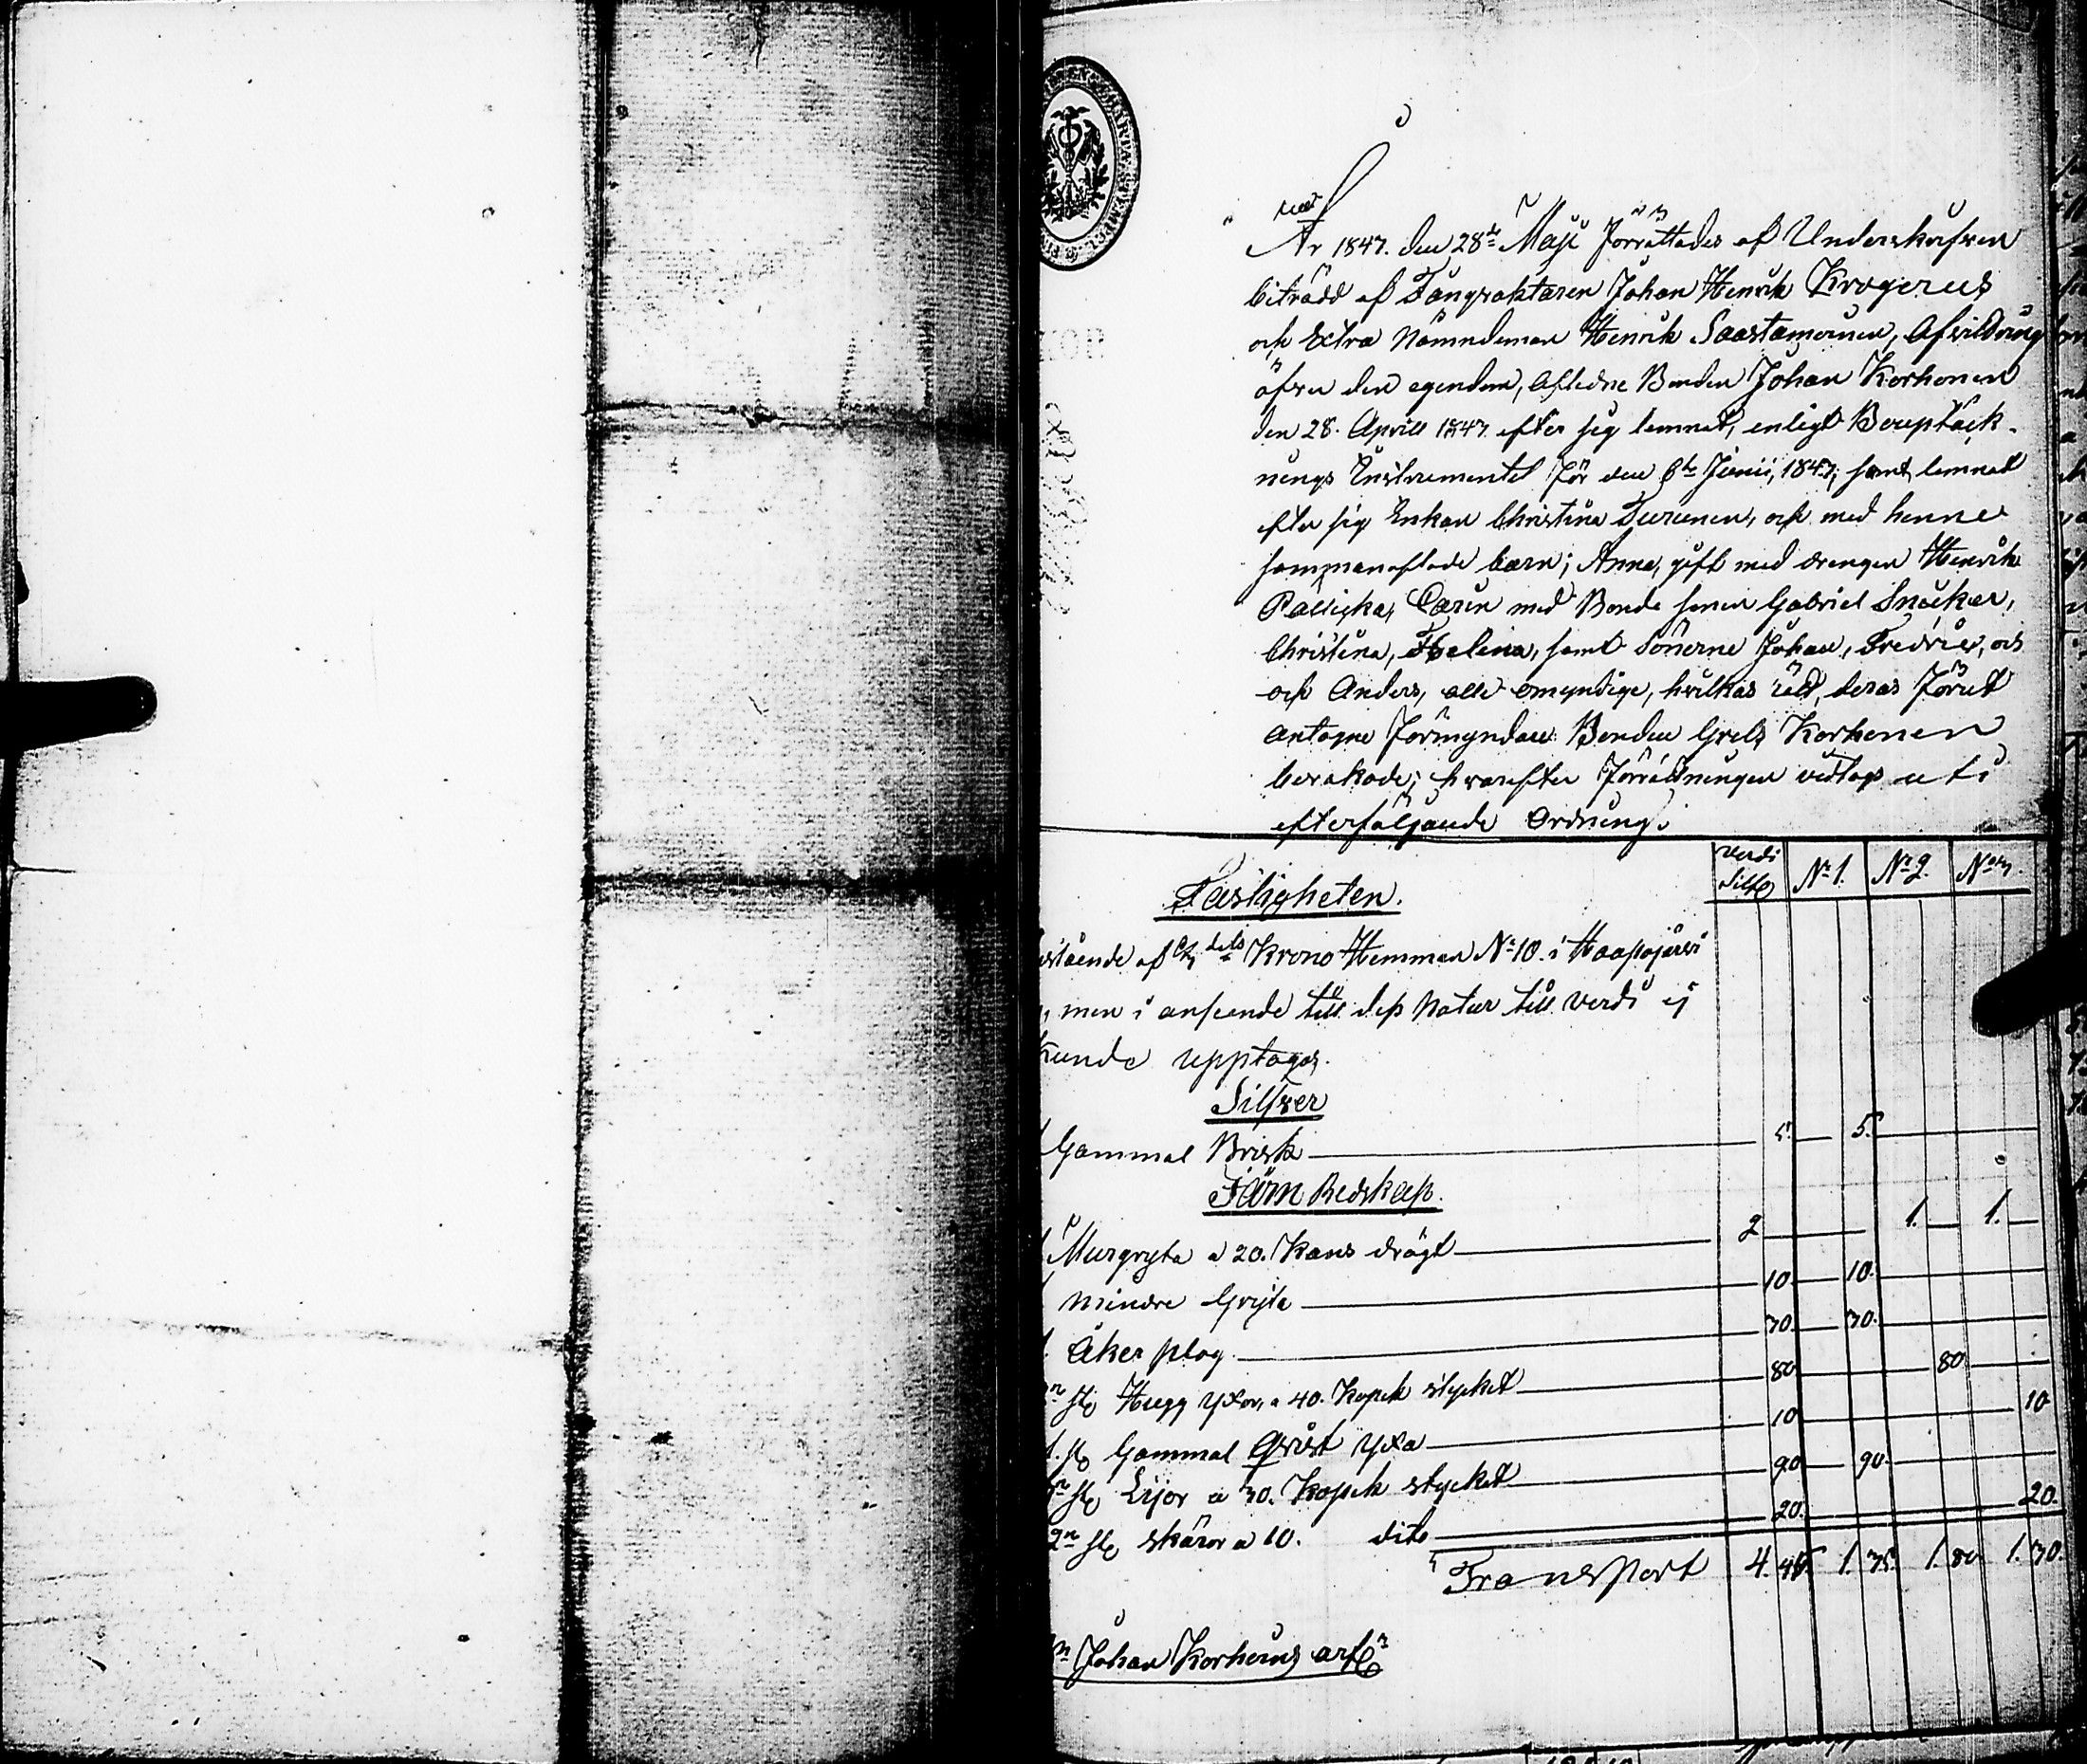 År 1847. den 28de Maji förrättades af Underskrifven
biträdd af Fångvaktaren Johan Henrik Krogerus
och Extra Nämndeman Henrik Saastamoinen, Afvittring
öfver den egendom, aflidne Bonden Johan Korhonen
den 28. Aprill 1847 efter sig lemnat, enligt Bouptäck-
nings Instrumentet för den Junii, 1847, samt lemnat
efter sig Enkan Christina Turunen, och med henne
sammanaflade barn; Anna, gift med drengen Henrik
Carin med Bonde sonen Gabriel Snicker,
Christina, Helena, samt Sönerne Johan, Fredric, och
och Anders, alla omyndige, hvilkas rätt, deras förut
antagne Förmyndare Bonden Grels Korhonen
bevakade; hvarefter Förrättningen vidtogs uti
efterföljande Ordning.
Verdi Silfr No 1. No 2. No 3.
Fastigheten.
dels Krono Hemman No 10. i Haapajärvi
, men i anseende till dess Natur till verdi ej
kunde upptagas.
Silfver
Gammal Brisk 5. 5.
Järn Redskap.
Murgryta a 20. Kans drägt 2 1. 1.
mindre Gryta 10. 10.
1. Åker plog 30. 30.
st Hugg yxor, a 40. Kopek stycket 80 80
1. st Gammal yxa 10 10
st Lijor a 30. Kopek stycket 90 90.
2n st skäror a 10. dito 20. 20.
Transport 4. 45. 1. 35. 1. 80 1. 30.
Johan Korhoins arf